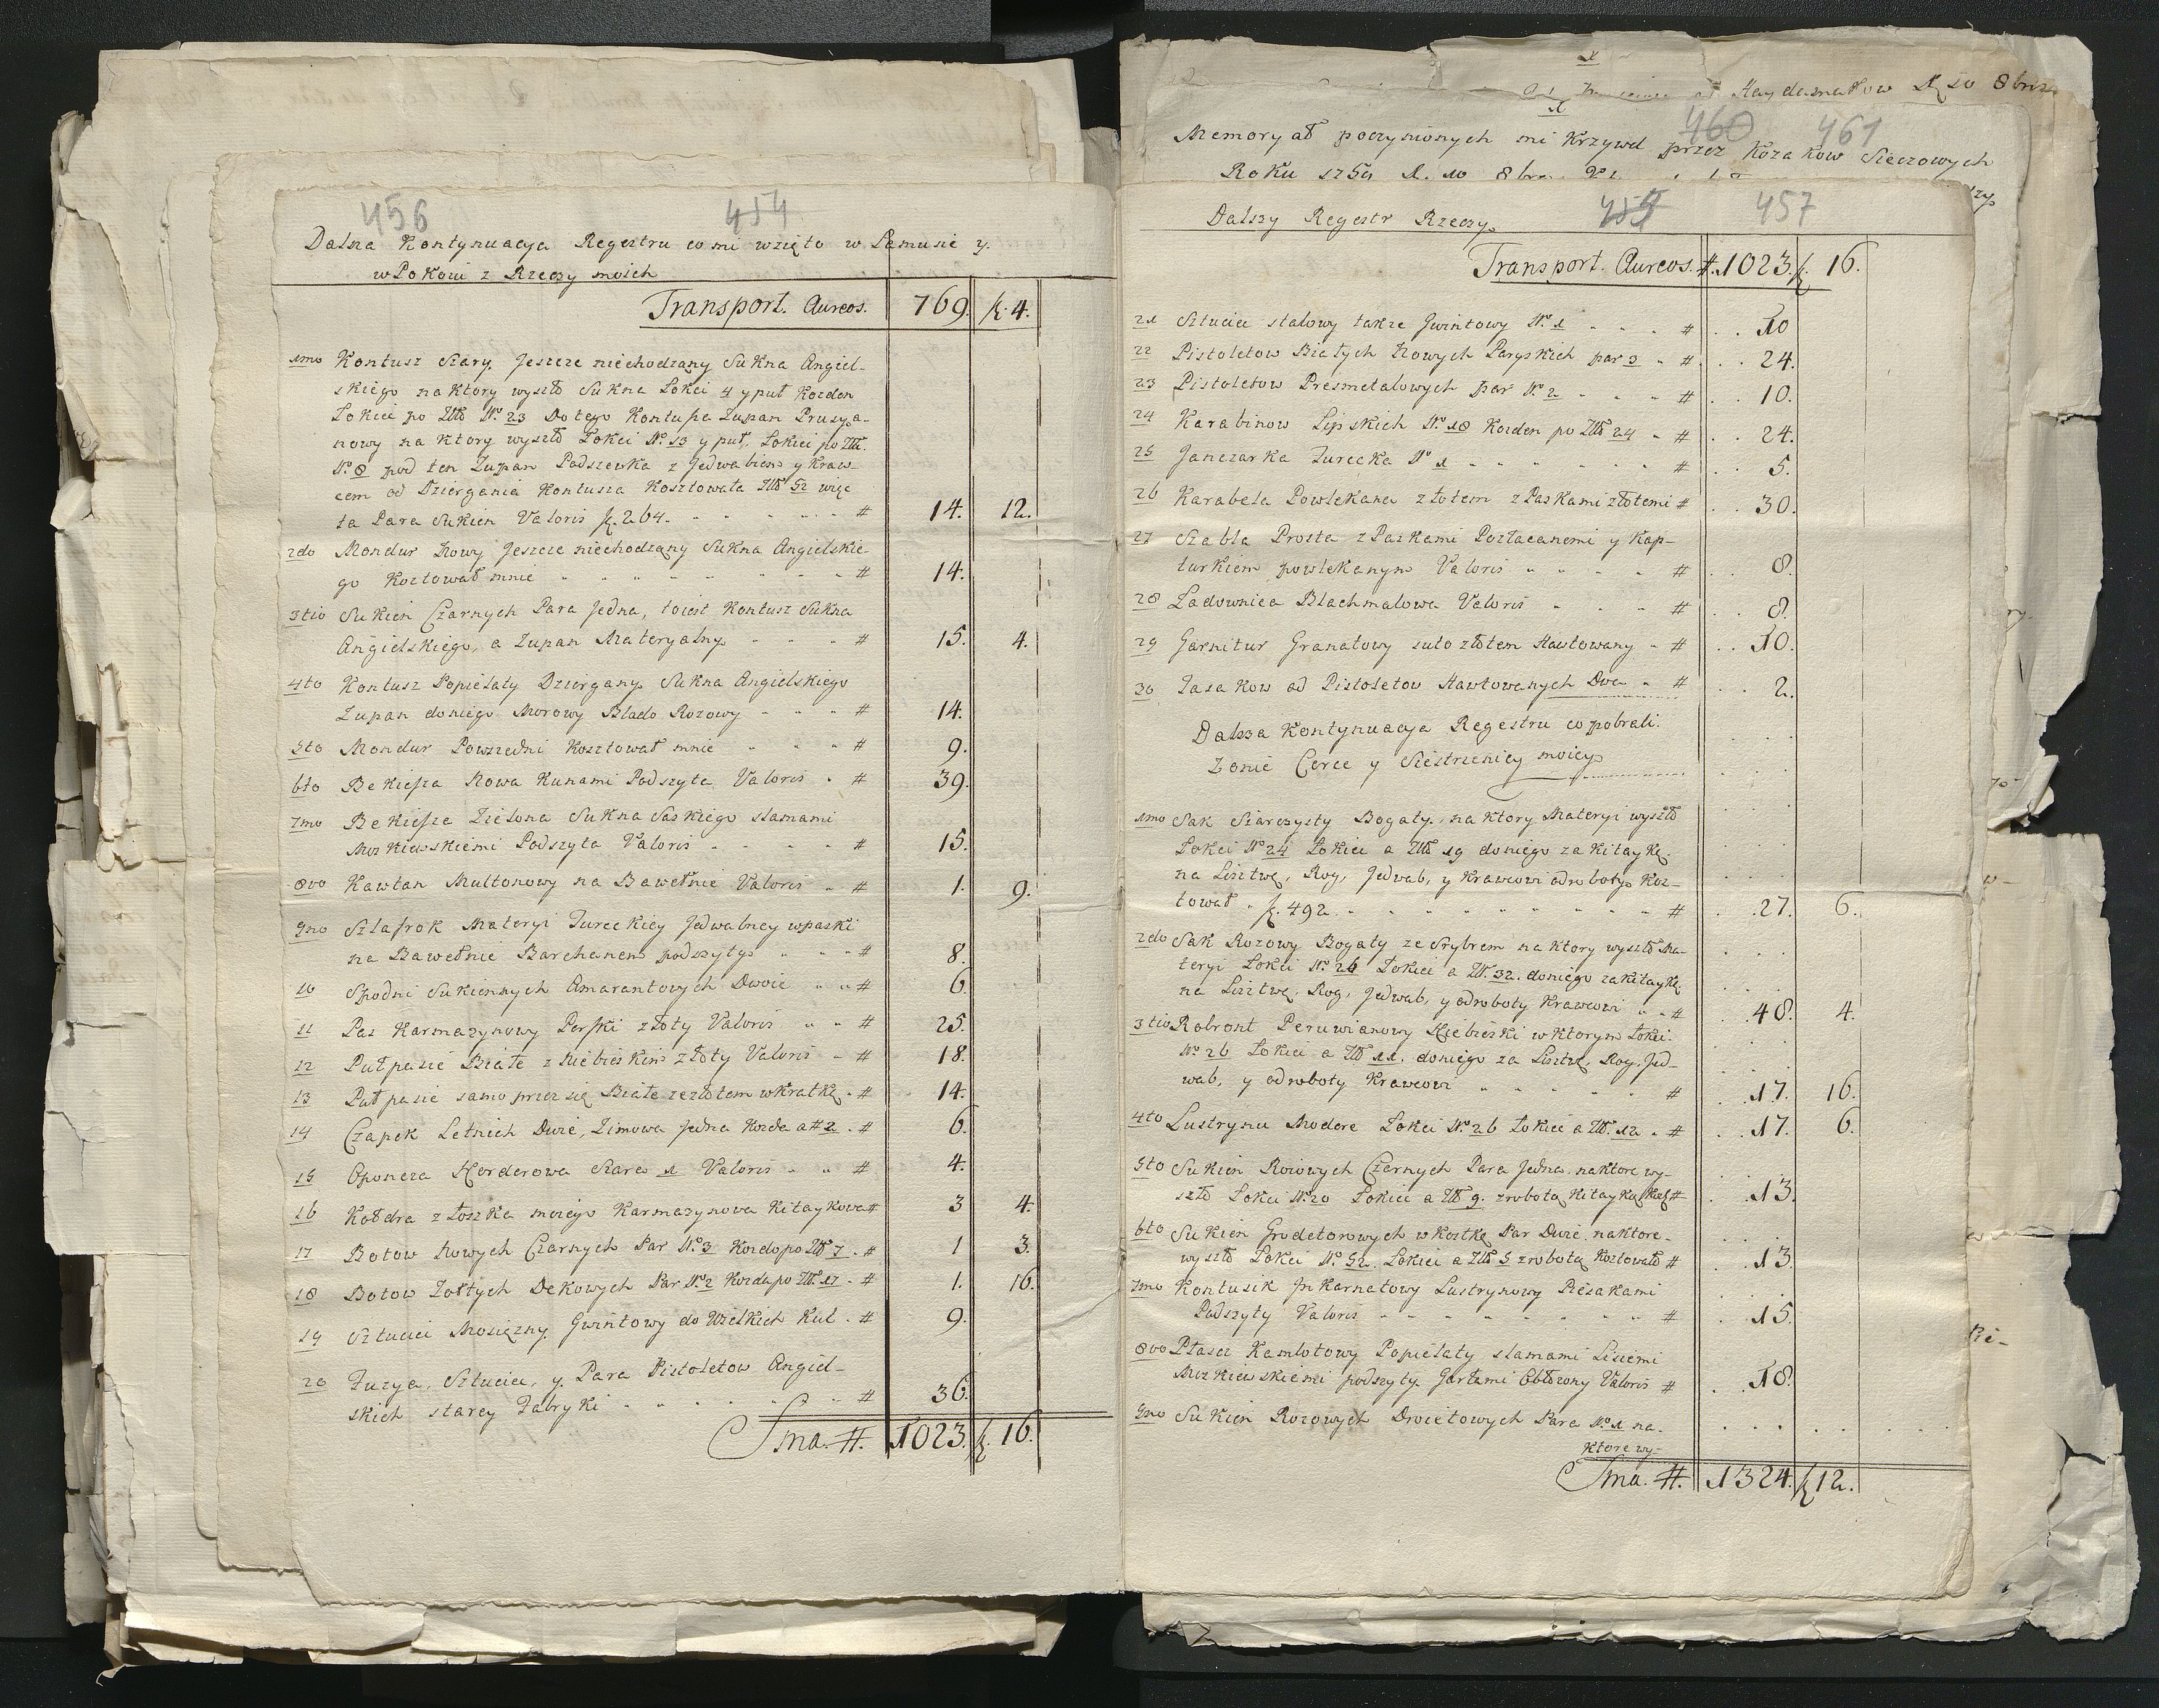 456 454
Dalsza Kontynuacya Regestru co mi wzięto w Lamusie y
w Pokoiu z Rzeczy moich
Transport. Aureos. 769. f. 4.
1mo Kontusz Szary Jeszcze niechodzany Sukna Angiel-
skiego na ktory wyszło Sukna Łokci 4 y puł Kozden
Łokieć po Złł No. 23 Do tego Kontusza Zupan Prusya-
nowy na ktory wyszło Łokci No. 13 y puł, Łokieć po Złł.
No. 8 pod ten Zupan Podszewka z Jedwabiem y Kraw-
cem od Dziergania Kontusza Kosztowała Złł 52 więc
ta Para Sukien Valoris f. 264. # 14. 12.
2do Mondur Nowy Jeszcze niechodzany Sukna Angielskie-
go Kosztował mnie # 14.
3tio Sukien Czarnych Para Jedna, toiest Kontusz Sukna
Angielskiego, a Zupan Materyalny # 15. 4.
4to Kontusz Popielaty Dziergany Sukna Angielskiego
Zupan doniego Morowy Blado Rozowy # 14.
5to Mondur Powszedni Kosztował mnie # 9.
6to Bekiesza Nowa Kunami Podszyta Valoris # 39.
7mo Bekiesza Zielona Sukna Saskiego slamami
Moskiewskiemi Podszyta Valoris # 15.
8vo Kawtan Multonowy na Bawełnie Valoris # 1. 9.
9no Szlafrok Materyi Tureckiey Jedwabney wpaski
na Bawełnie Barchanem podszyty # 8.
10 Spodni Sukiennych Amarantowych Dwoie # 6.
11 Pas Karmazynowy Perski złoty Valoris # 25.
12 Pułpasie Białe z Niebieskim złoty Valoris # 18.
13 Pułpasie samo przez się Białe ze złotem w Kratkę # 14.
14 Czapek Letnich Dwie, Zimowa Jedna Kożda a # 2 # 6.
15 Oponcza Szara 1 Valoris # 4.
16 Kołdra z łoszka moiego Karmazynowa Kitaykowa # 3 4.
17 Botow Nowych Czarnych Par No. 3 Kozda po Złł 7 # 1 3.
18 Botow Zołtych Dekowych Par No. 2 Kozda po Złł. 17 # 1. 16.
19 Sztuciec Mosiężny Gwintowy do Wielkich Kul # 9.
20 Fuzya, Sztuciec, y Para Pistoletow Angiel-
skich starey Fabryki # 36.
Sma. #. 1023. f. 16.
Haydamakow 10 8bris
460 461
Memoryał poczynionych mi Krzywd przez Kozakow Sieczowych
Roku 1759
455 457
Dalszy Regestr Rzeczy
Transport. Aureos. #. 1023. f. 16.
21 Sztuciec stalowy takze Gwintowy No. 1 # 10
22 Pistoletow Białych Nowych Paryskich par 3 # 24.
23 Pistoletow Presmetalowych par No. 2 # 10.
24 Karabinow Lipskich No. 18 Kozden po Złł 24 # 24.
25 Janczarka Turecka No 1 # 5.
26 Karabela Powlekana złotem z Paskami złotemi # 30.
27 Szabla Prosta z Paskami Pozłacanemi y Kap-
turkiem powlekanym Valoris # 8.
28 Ladownica Blachmalowa Valoris # 8.
29 Garnitur Granatowy suto złotem Hawtowany # 10.
30 Tasakow od Pistoletow Hawtowanych Dwa # 2.
Dalsza Kontynuacya Regestru co pobrali
Zonie Corce y Siestrzenicy moiey
1mo Sak Siarczysty Bogaty na ktory Materyi wyszło
Łokci No 24 Łokieć a Złł 19 doniego za Kitaykę
na Lisztwę, Rog, Jedwab, y Krawcowi od roboty Kosz-
tował f. 492 # 27. 6.
2do Sak Rozowy Bogaty ze Srybrem na ktory wyszło Ma-
teryi Łokci No. 26 Łokieć a Złł. 32. doniego za Kitaykę
na Lisztwę, Rog, Jedwab, y od roboty Krawcowi # 48. 4.
3tio Robront Peruwianowy Niebieski w ktorym Łokci
No. 26 Łokieć a Złł 11. doniego za Lisztwę, Rog, Jed-
wab, y od roboty Krawcowi # 17. 16.
4to Lustrynu Modere Łokci No. 26 Łokieć a Złł. 12 # 17. 6.
5to Sukien Czarnych Para Jedna na ktore wy-
szło Łokci No. 20 Łokieć a Złł 9. z robotą Kitayką # 13.
6to Sukien Grodetorowych w Kostkę Par Dwie na ktore
wyszło Łokci No. 52. Łokieć a Złł 5 z robotą Kosztowało # 13
7mo Kontusik Lustrynowy Piesakami
Podszyty Valoris # 15.
8vo Płaszcz Kamlotowy Popielaty slamami Lisiemi
Moskiewskiemi podszyty Garłami Obłożony Valoris # 18.
9no Sukien Rozowych Droietowych Para No. 1 na
ktore wy-
Sma. #. 1324. f. 12.